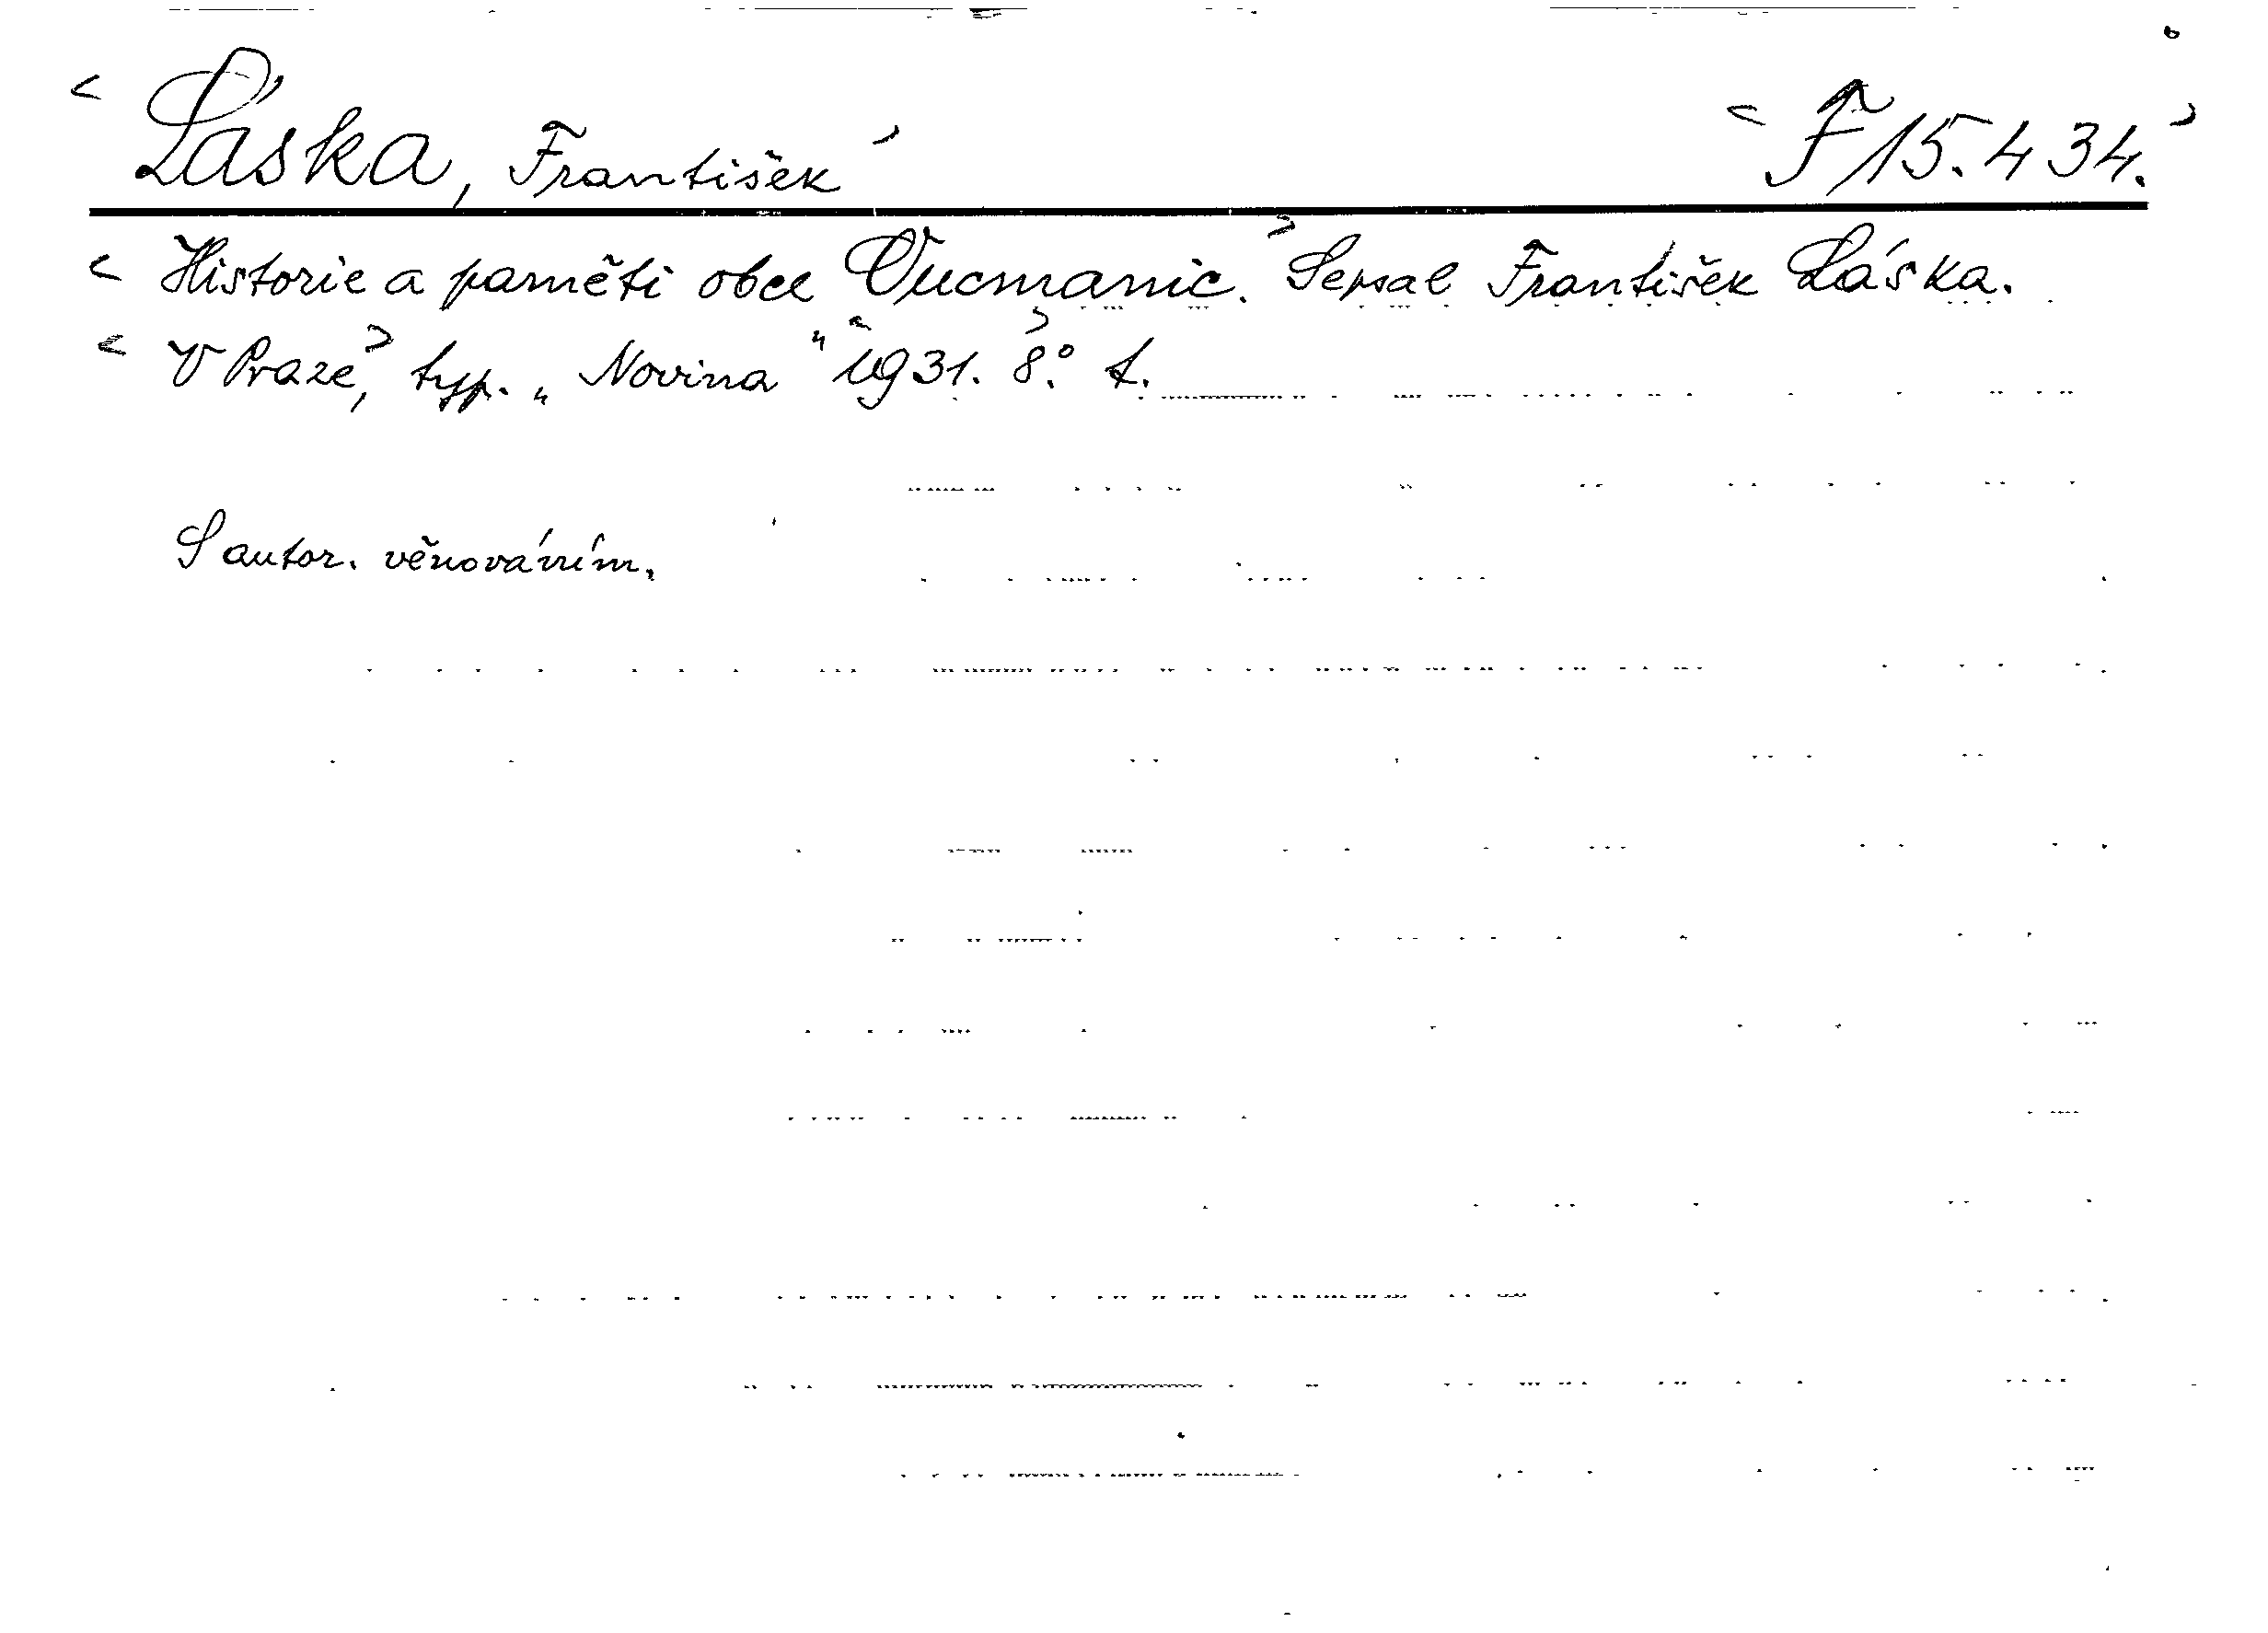 < Láska, František > < F 15.434. >
< Historie a paměti obce Vucmanic. > Sepsal František Láska.
< V Praze, > typ. „Novina" < 1931. > 8.°
S autor. věnováním.